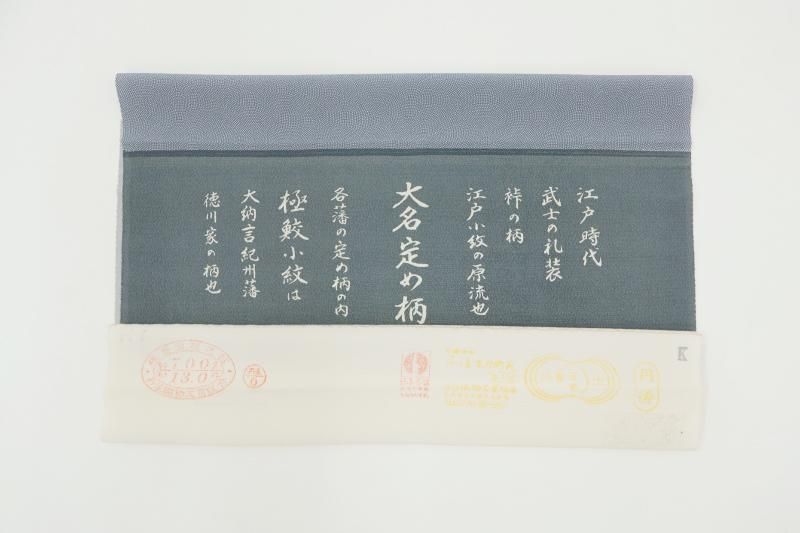 江戸時代
武士の礼装
裃の柄
江戸小紋の原流也
大名定め柄
各藩の定め柄の内
極鮫小紋は
大納言紀州藩
徳川家の柄也
K
丹後
700
13.0